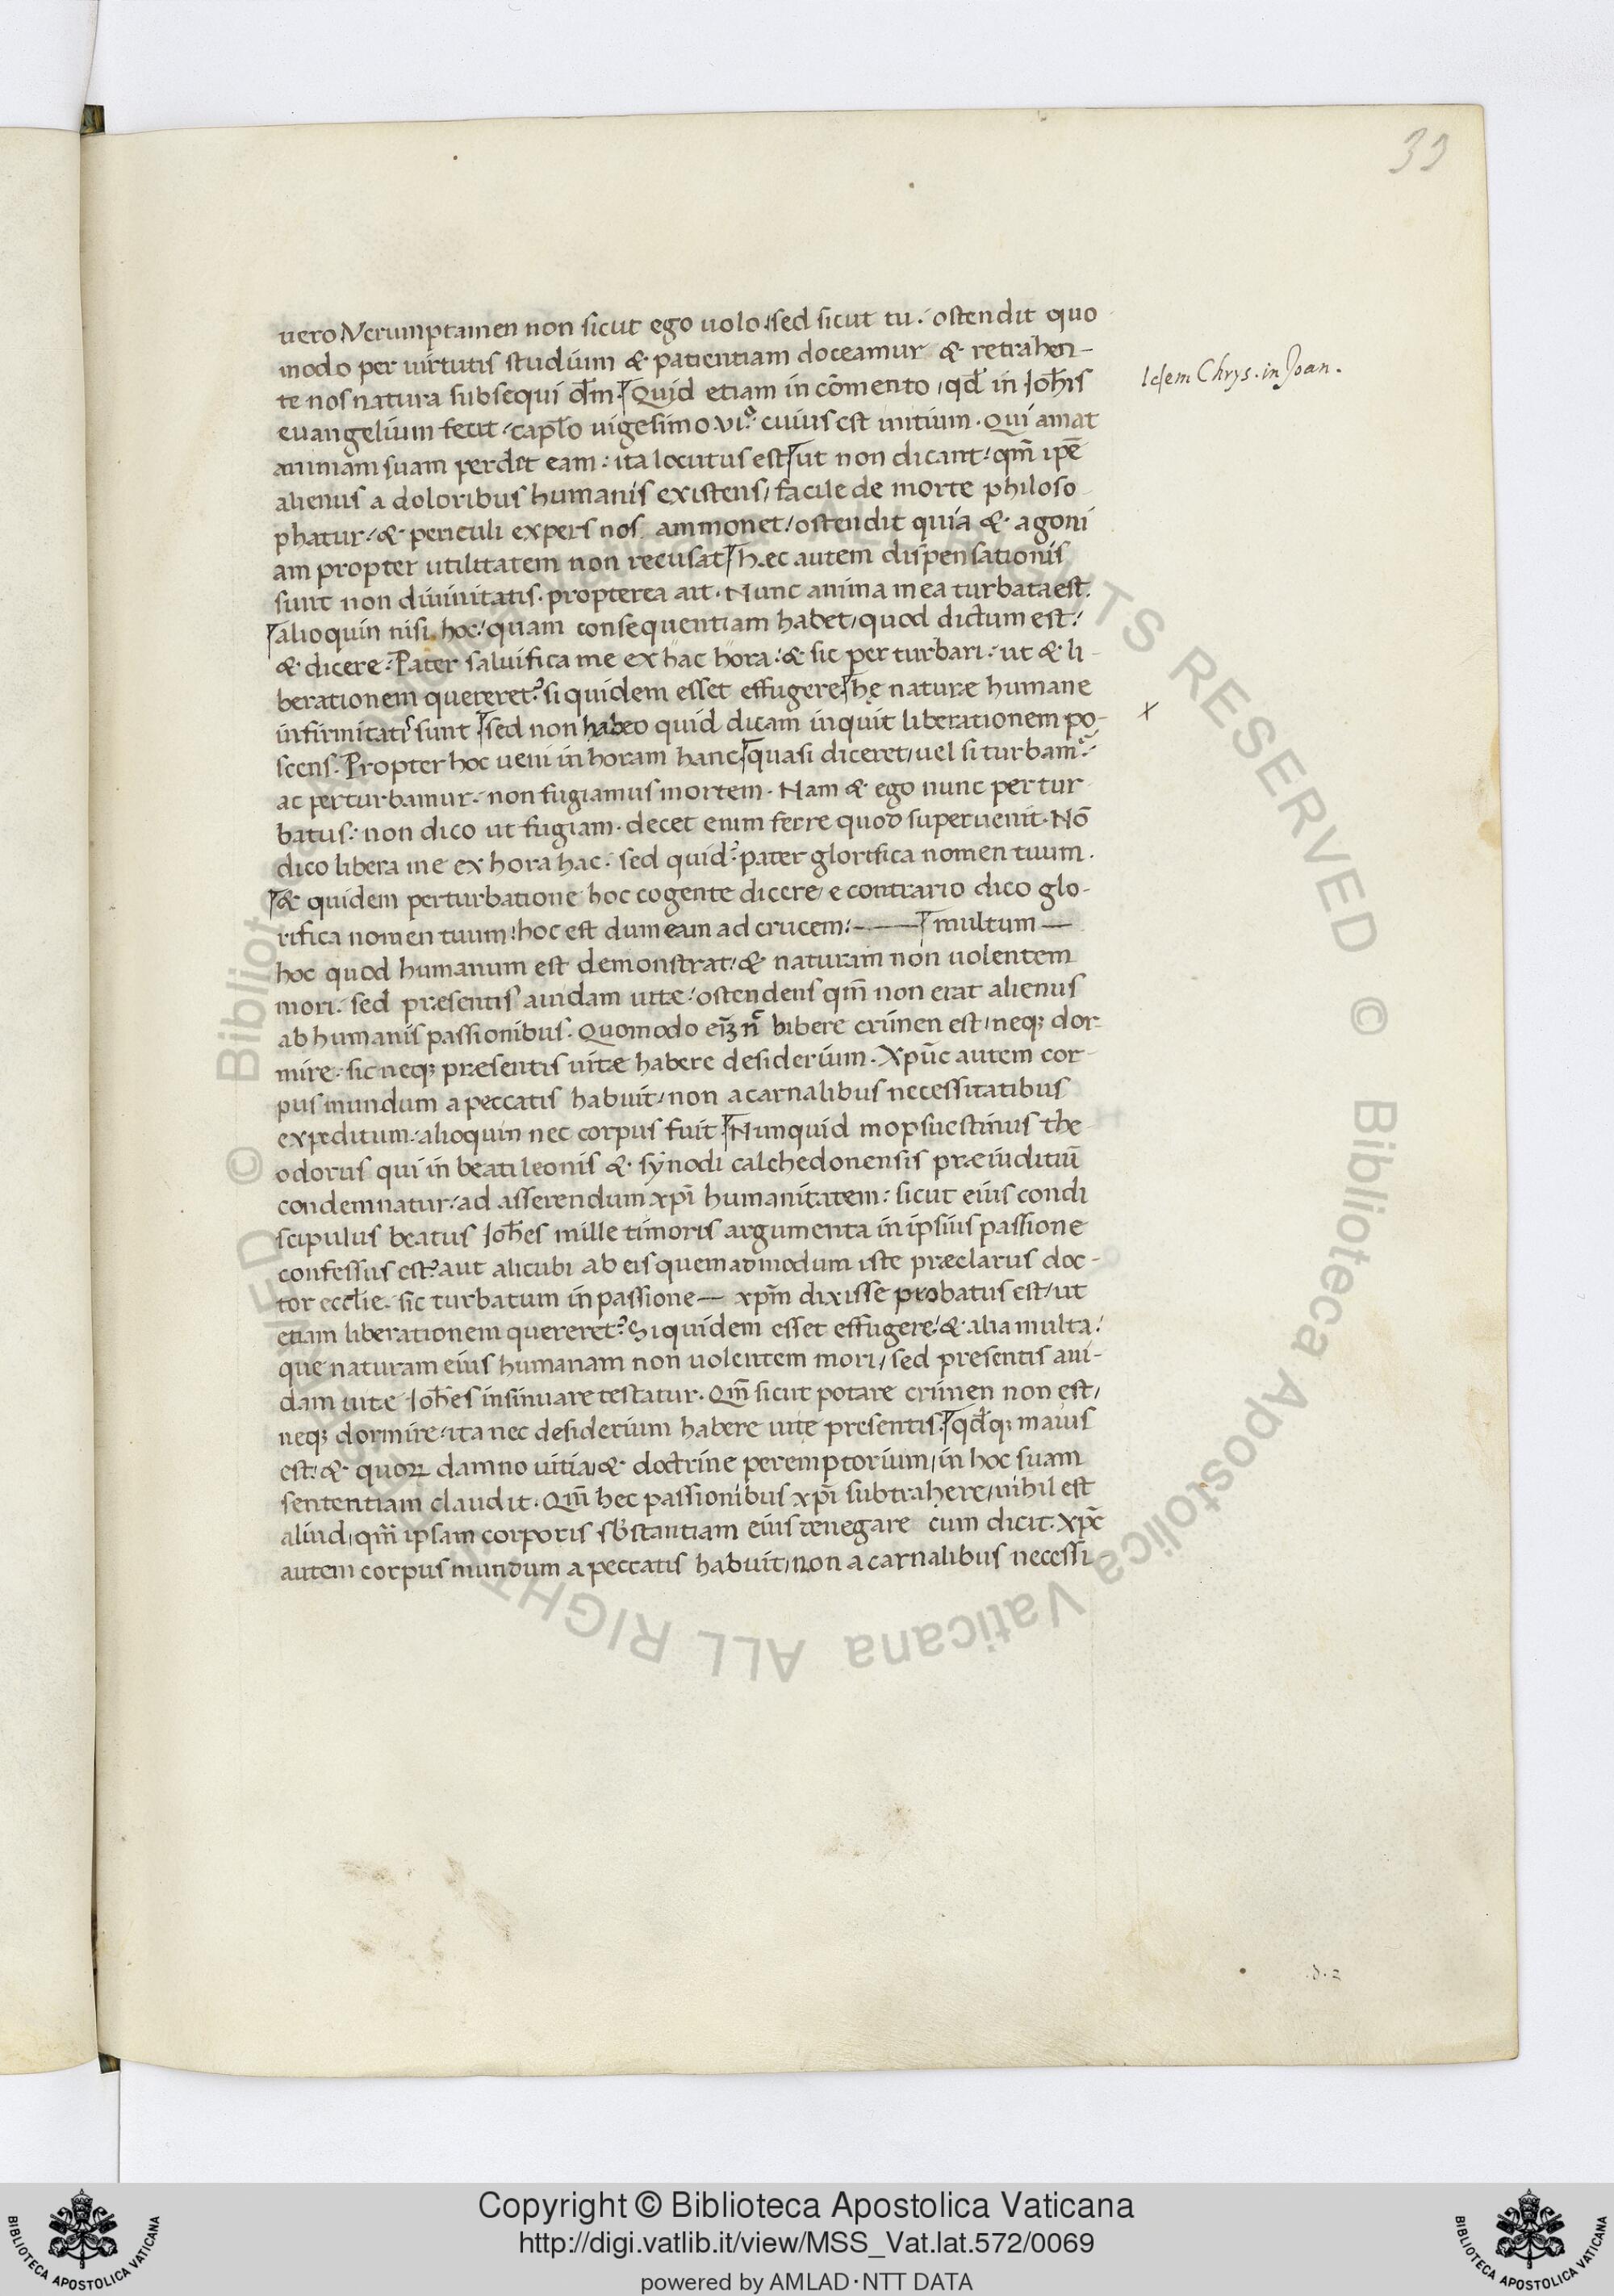 33
uero Verumptamen non sicut ego uolo. sed sicut tu. ostendit quo
modo per uirtutis studium & patientiam doceamur & retrahen-
te nos natura subsequi dm̄. Quid etiam in cōmento, qd̄ in Ioh̄is
Idem Chrys. in Joan.
euangelium fecit. cap̄lo uigesimo .vi.º cuius est initium. Qui amat
animam suam perdet eam: ita locutus est, ut non dicant. qm̄ ipē
alienus a doloribus humanis existens, facile de morte philoso
phatur. & periculi expers nos ammonet, ostendit quia & agoni
am propter utilitatem non recusat. hec autem dispensationis
sunt non diuinitatis. propterea ait. Nunc anima mea turbata est.
alioquin nisi hoc. quam consequentiam habet, quod dictum est.
& dicere. Pater saluifica me ex hac hora. & sic perturbari. ut & li-
berationem quereret? si quidem esset effugere. hę naturæ humane
infirmitatis sunt. sed non habeo quid dicam inquit liberationem po-
x
scens. Propter hoc ueni in horam hanc. quasi diceret, uel si turbamᷣ.
ac perturbamur. non fugiamus mortem. Nam & ego nunc pertur
batus. non dico ut fugiam. decet enim ferre quod superuenit. Nō
dico libera me ex hora hac. sed quid? pater glorifica nomen tuum.
& quidem perturbatione hoc cogente dicere, e contrario dico glo-
rifica nomen tuum. hoc est dum eam ad crucem. — multum —
hoc quod humanum est demonstrat. & naturam non uolentem
mori. sed præsentis auidam uite. ostendens qm̄ non erat alienus
ab humanis passionibus. Quomodo eiꝫ n̄ bibere crimen est, neqꝫ dor-
mire. sic neqꝫ præsentis uitæ habere desiderium. Xpūc autem cor-
pus mundum a peccatis habuit, non a carnalibus necessitatibus
expeditum. alioquin nec corpus fuit. Nunquid mopsuestinus the
odorus qui in beati leonis & synodi calchedonensis præiuditiū
condemnatur, ad asserendum xp̄i humanitatem: sicut eius condi
scipulus beatus Ioh̄es mille timoris argumenta in ipsius passione
confessus est? aut alicubi ab eis quemadmodum iste præclarus doc-
tor eccl̄ie. sic turbatum in passione — xpm̄ dixisse probatus est, ut
etiam liberationem quereret? Si quidem esset effugere. & alia multa.
que naturam eius humanam non uolentem mori, sed presentis aui-
dam uitæ Ioh̄es insinuare testatur. Qm̄ sicut potare crimen non est,
neqꝫ dormire. ita nec desiderium habere uite presentis. qd̄qꝫ maius
est. & quoꝝ damno uitia, & doctrine peremptorium, in hoc suam
sententiam claudit. Qm̄ hec passionibus xp̄i subtrahere, nihil est
aliud, qm̄ ipsam corporis sb̄stantiam eius denegare cum dicit. Xp̄c
autem corpus mundum a peccatis habuit, non a carnalibus necessi-
.d.2
Copyright © Biblioteca Apostolica Vaticana
http://digi.vatlib.it/view/MSS_Vat.lat.572/0069
powered by AMLAD·NTT DATA
BIBLIOTECA APOSTOLICA VATICANA
BIBLIOTECA APOSTOLICA VATICANA